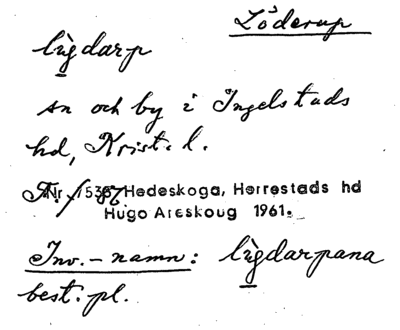 Löderup
lìgdarp
sn och by i Ingelstads
hd, Krist. l.
Nr. 1536 Hedeskoga, Herrestads hd
Hugo Areskoug 1961.
Inv.-namn: lìgdarpana
best. pl.